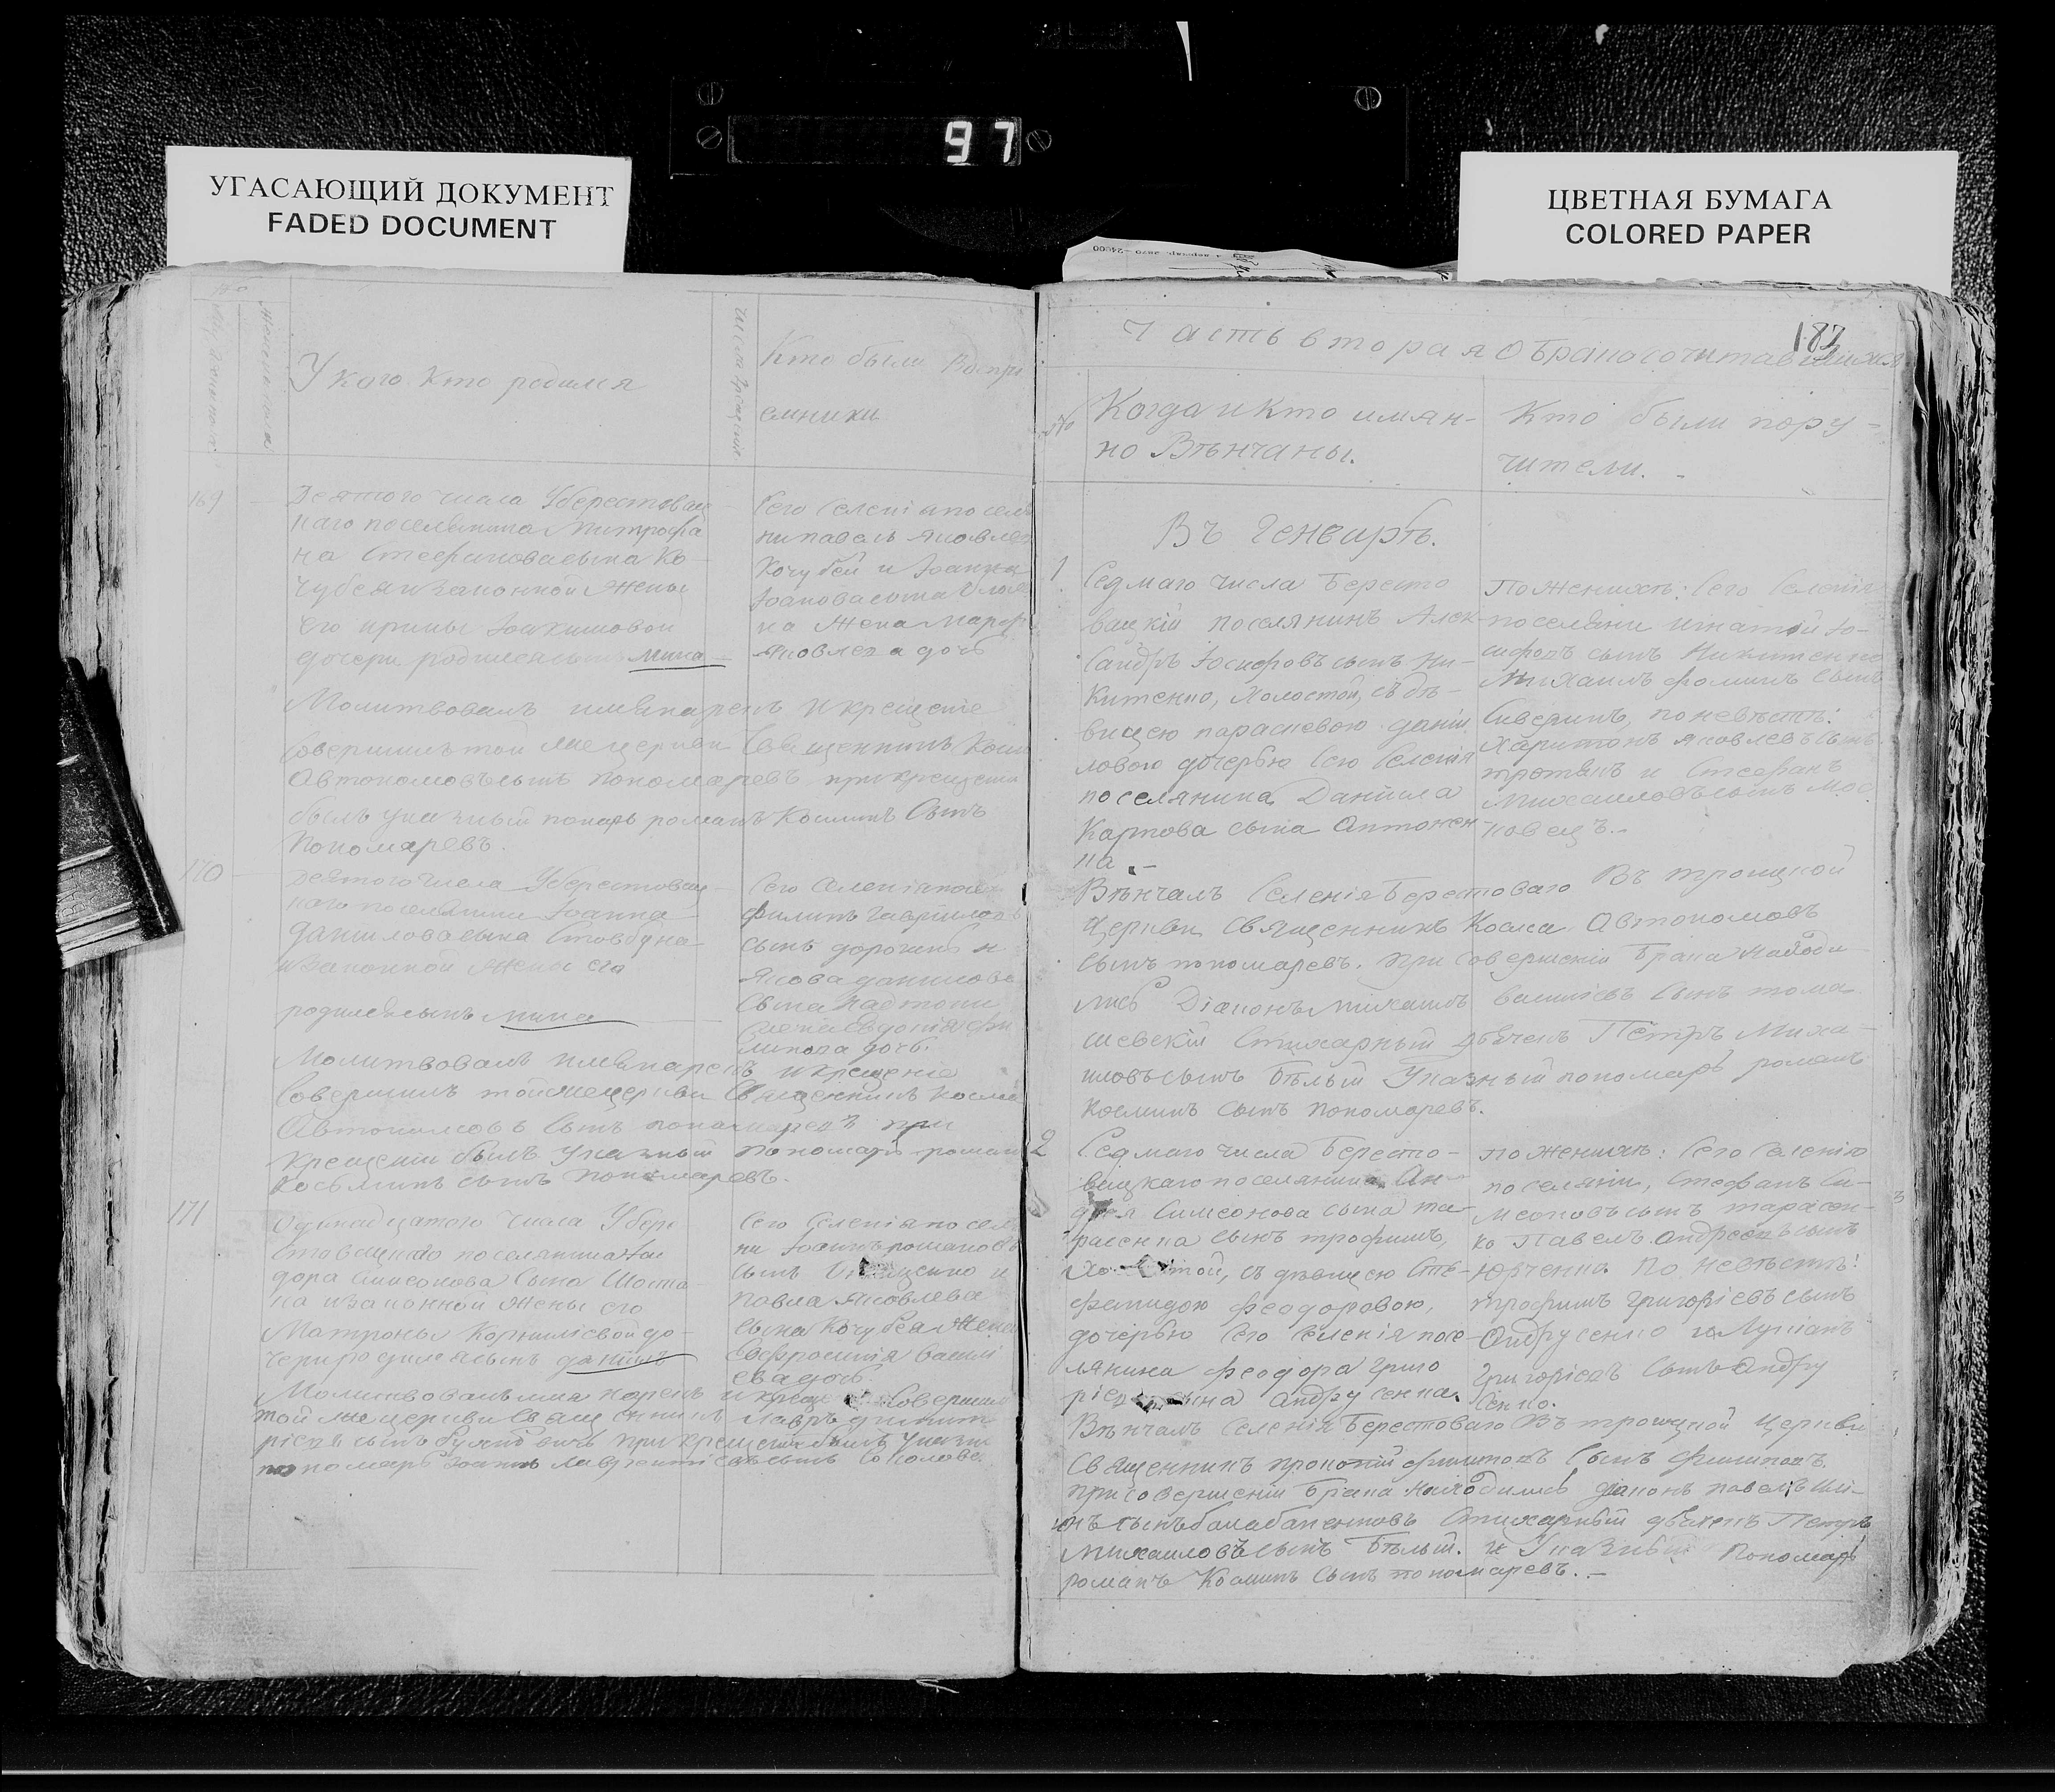 97
УГАСАЮЩИЙ ДОКУМЕНТ
FADED DOCUMENT
ЦВЕТНАЯ БУМАГА
COLORED PAPER
У кого кто родился
Кто были Воспри
емники
169
Девятого числа Уберестовец
каго поселянина Митрофа
на Стефанова сына Ко
чубея и законной жены
его ирины Іоакимовой
дочери родился сынъ Мина
Сего Селенія посел
ни павелъ яковлев
Кочубей и Іоанна
на жена марф
яковлева дочь
Молитвовалъ имянарекъ и крещеніе
Совершилъ той же церкви Священникъ Косма
Автономовъ сынъ пономаревъ при крещении
былъ указный понарь романъ Косминъ Сынъ
Пономаревъ.
170
Девятого числа Уберестовец
каго поселянина Іоанна
данилова сына Стовбуна
и Законной жены его
родился сынъ мина
Сего Селенія посел
филипъ гавриловъ
сынъ и
Якова данилова
сына
жена Евдокія фи
липова дочь.
Молитвовалъ имянарекъ и крещеніе
Совершилъ той же церкви Священникъ Косма
Автономовъ Сынъ пономаревъ при
Крещении былъ Указный пономарь роман
Косьминъ сынъ пономаревъ.
171
Одинадцатого Числа Убере
стовецкаго поселянина Іси
дора Симеонова Сына Шоста
ка и законной жены его
Матроны Корниліевой до
чери родился сынъ даніилъ
Сего Селенія посел
ни Іоаннъ романовъ
сынъ и
Павла Яковлева
сына Кочубея жена
Евфросинія Васил
ева дочь.
Молитвовалъ имя нарекъ и крещ Совершил
той же церкви Священникъ Лавръ димит
ріевъ сынъ при крещении былъ указн
пономарь Іоаннъ Лаврентіевъ сынъ Соколовс
187
Часть вторая О Бракосочитавшихся
№
Когда и кто имян-
но Вѣнчаны.
Кто были пору-
чители.
Въ Генварѣ.
1
Седмаго числа Бересто
вецкій поселянинъ Алек-
сандръ Іосифовъ сынъ Ни-
китенко, холостой, съ дѣ-
вицею параскевою даніи
ловою дочерью Сего Селенія
поселянина Даніила
Карпова сына Антонен-
ка.
По Женихѣ: Сего Селенія
поселяни игнатій Іо-
сифовъ сынъ Никитенко
Михаилъ фоминъ Сынъ
Сиверинъ, по невѣстѣ:
Харитонъ яковлевъ Сынъ
тротякъ и Стефанъ
Михаиловъ сынъ Мос
ковецъ.
Вѣнчалъ Селенія Берестоваго Въ троицкой
Церкви Священникъ Косма Автономовъ
сынъ пономаревъ. При совершеніи Брака находи
лись Діаконъ михаилъ василіевъ Сынъ тома
шевскій Стихарный дьячекъ Петръ Миха-
иловъ сынъ Бѣлый Указный пономарь романъ
Косминъ сынъ пономаревъ.
2
Седмаго числа Бересто-
вецкаго поселянина Ан-
дрея Симеонова сына та-
расенка сынъ трофимъ,
холостой, съ дѣвицею Сте-
фанидою феодоровою,
дочерью Сего Селенія посе-
лянина феодора григо
ріева сына Андрусенка.
По женихѣ: Сего Селенію
поселяни, Стефанъ Си-
меоновъ сынъ тарасен-
ко Павелъ андреевъ сынъ
Юрченко. По невѣстѣ:
трофимъ григоріевъ сынъ
Андрусенко и Лукіанъ
Григоріевъ Сынъ Андру
сенко.
Вѣнчалъ Селенія Берестоваго Въ троицкой Церкви
Священникъ прокопій филиповъ Сынъ филиповъ.
при совершеніи Брака находились діаконъ павелъ
сынъ Стихарный дьячекъ Петръ
Михаиловъ сынъ Бѣлый. и Указный Пономарь
романъ Косминъ Сынъ пономаревъ.